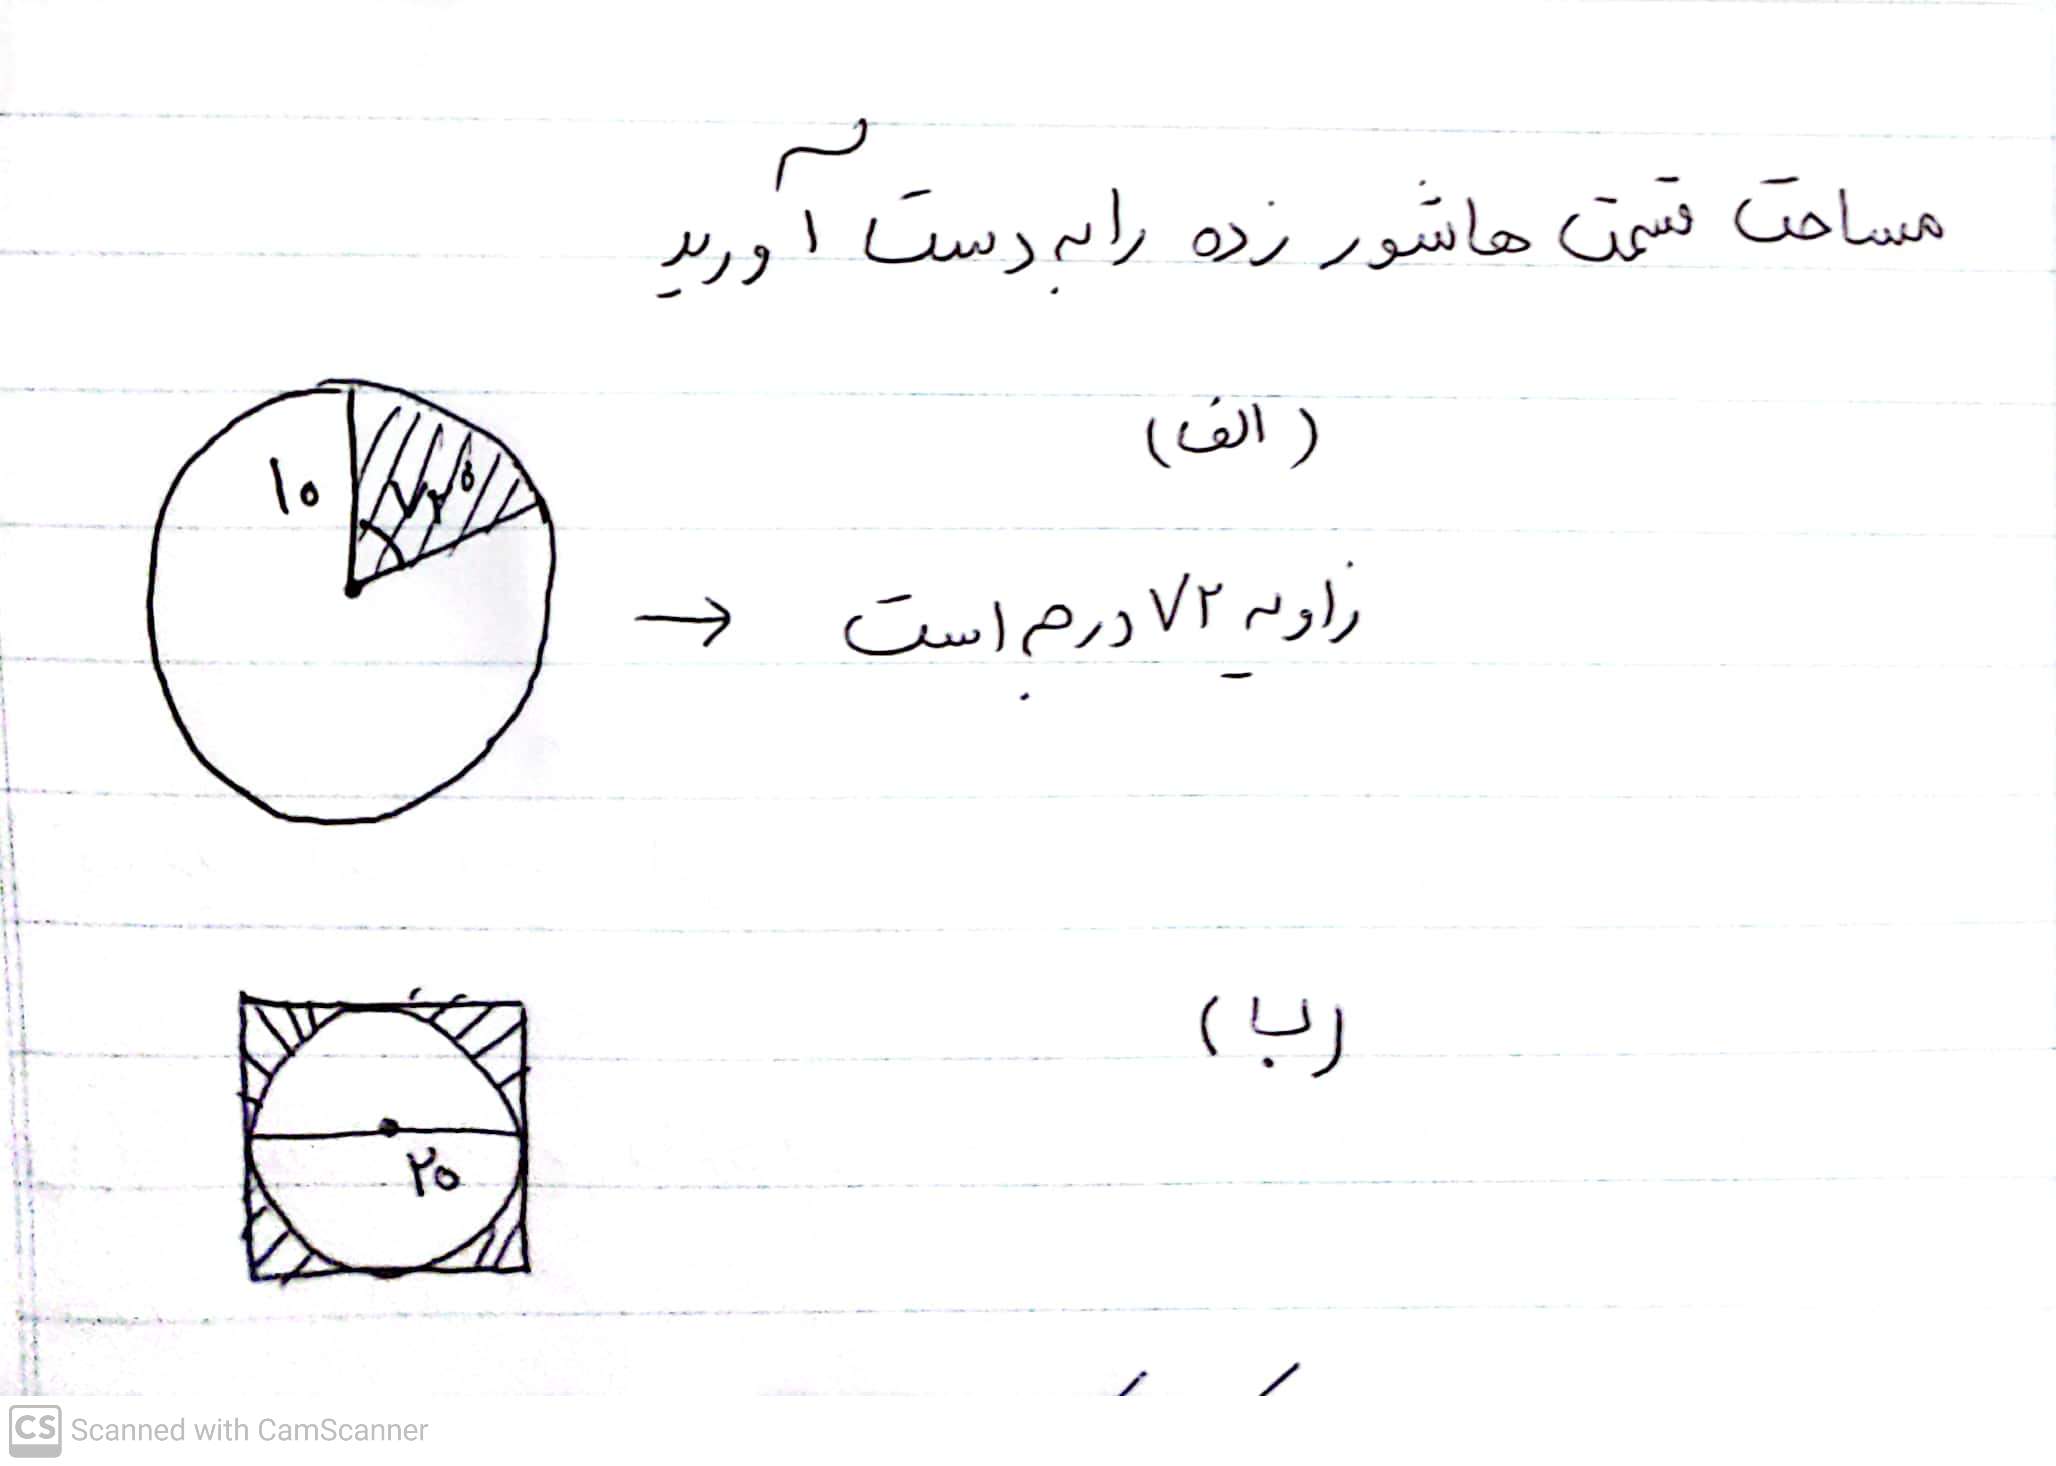 مساحت قسمت هاشور زده را به دست آورید
الف)
۱۰
۷۲°
زاویه ۷۲ درجه است →
ب)
۲۰
CS Scanned with CamScanner